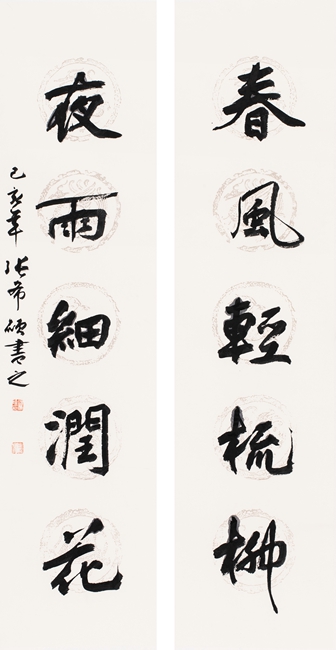 春風輕梳柳
夜雨細潤花
己亥年 張希碩書之